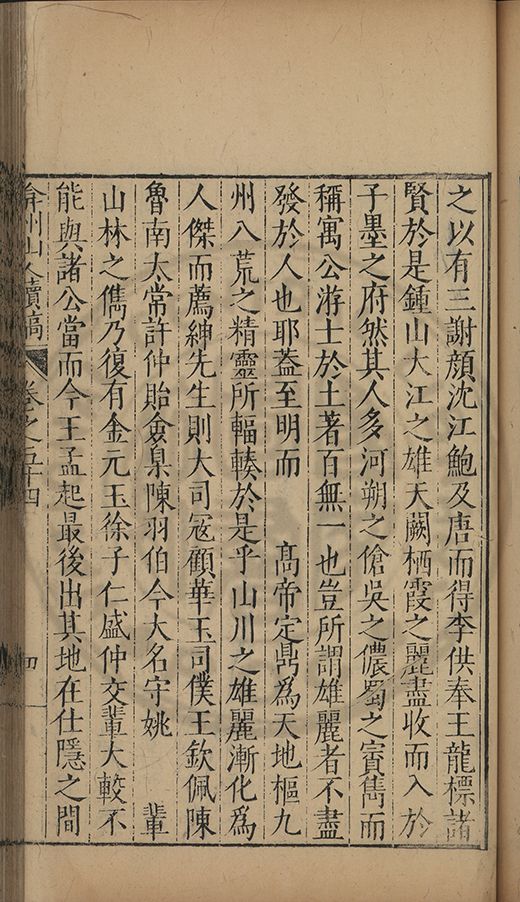 之以有三謝顏沈江鮑及唐而得李供奉王龍標諸
賢於是鍾山大江之雄天闕栖霞之麗盡收而入於
子墨之府然其人多河朔之傖吳之儂蜀之賨雋而
稱寓公游士於土著百無一也豈所謂雄麗者不盡
發於人也耶葢至明而　　高帝定鼎爲天地樞九
州八荒之精靈所輻輳於是乎山川之雄麗漸化爲
人傑而薦紳先生則大司寇顧華玉司僕王欽佩陳
魯南太常許仲貽僉臬陳羽伯今大名守姚　　輩
山林之儁乃復有金元玉徐子仁盛仲交輩大較不
能與諸公當而今王孟起最後出其地在仕隱之間
弇州山人續稿　卷之五十四　四